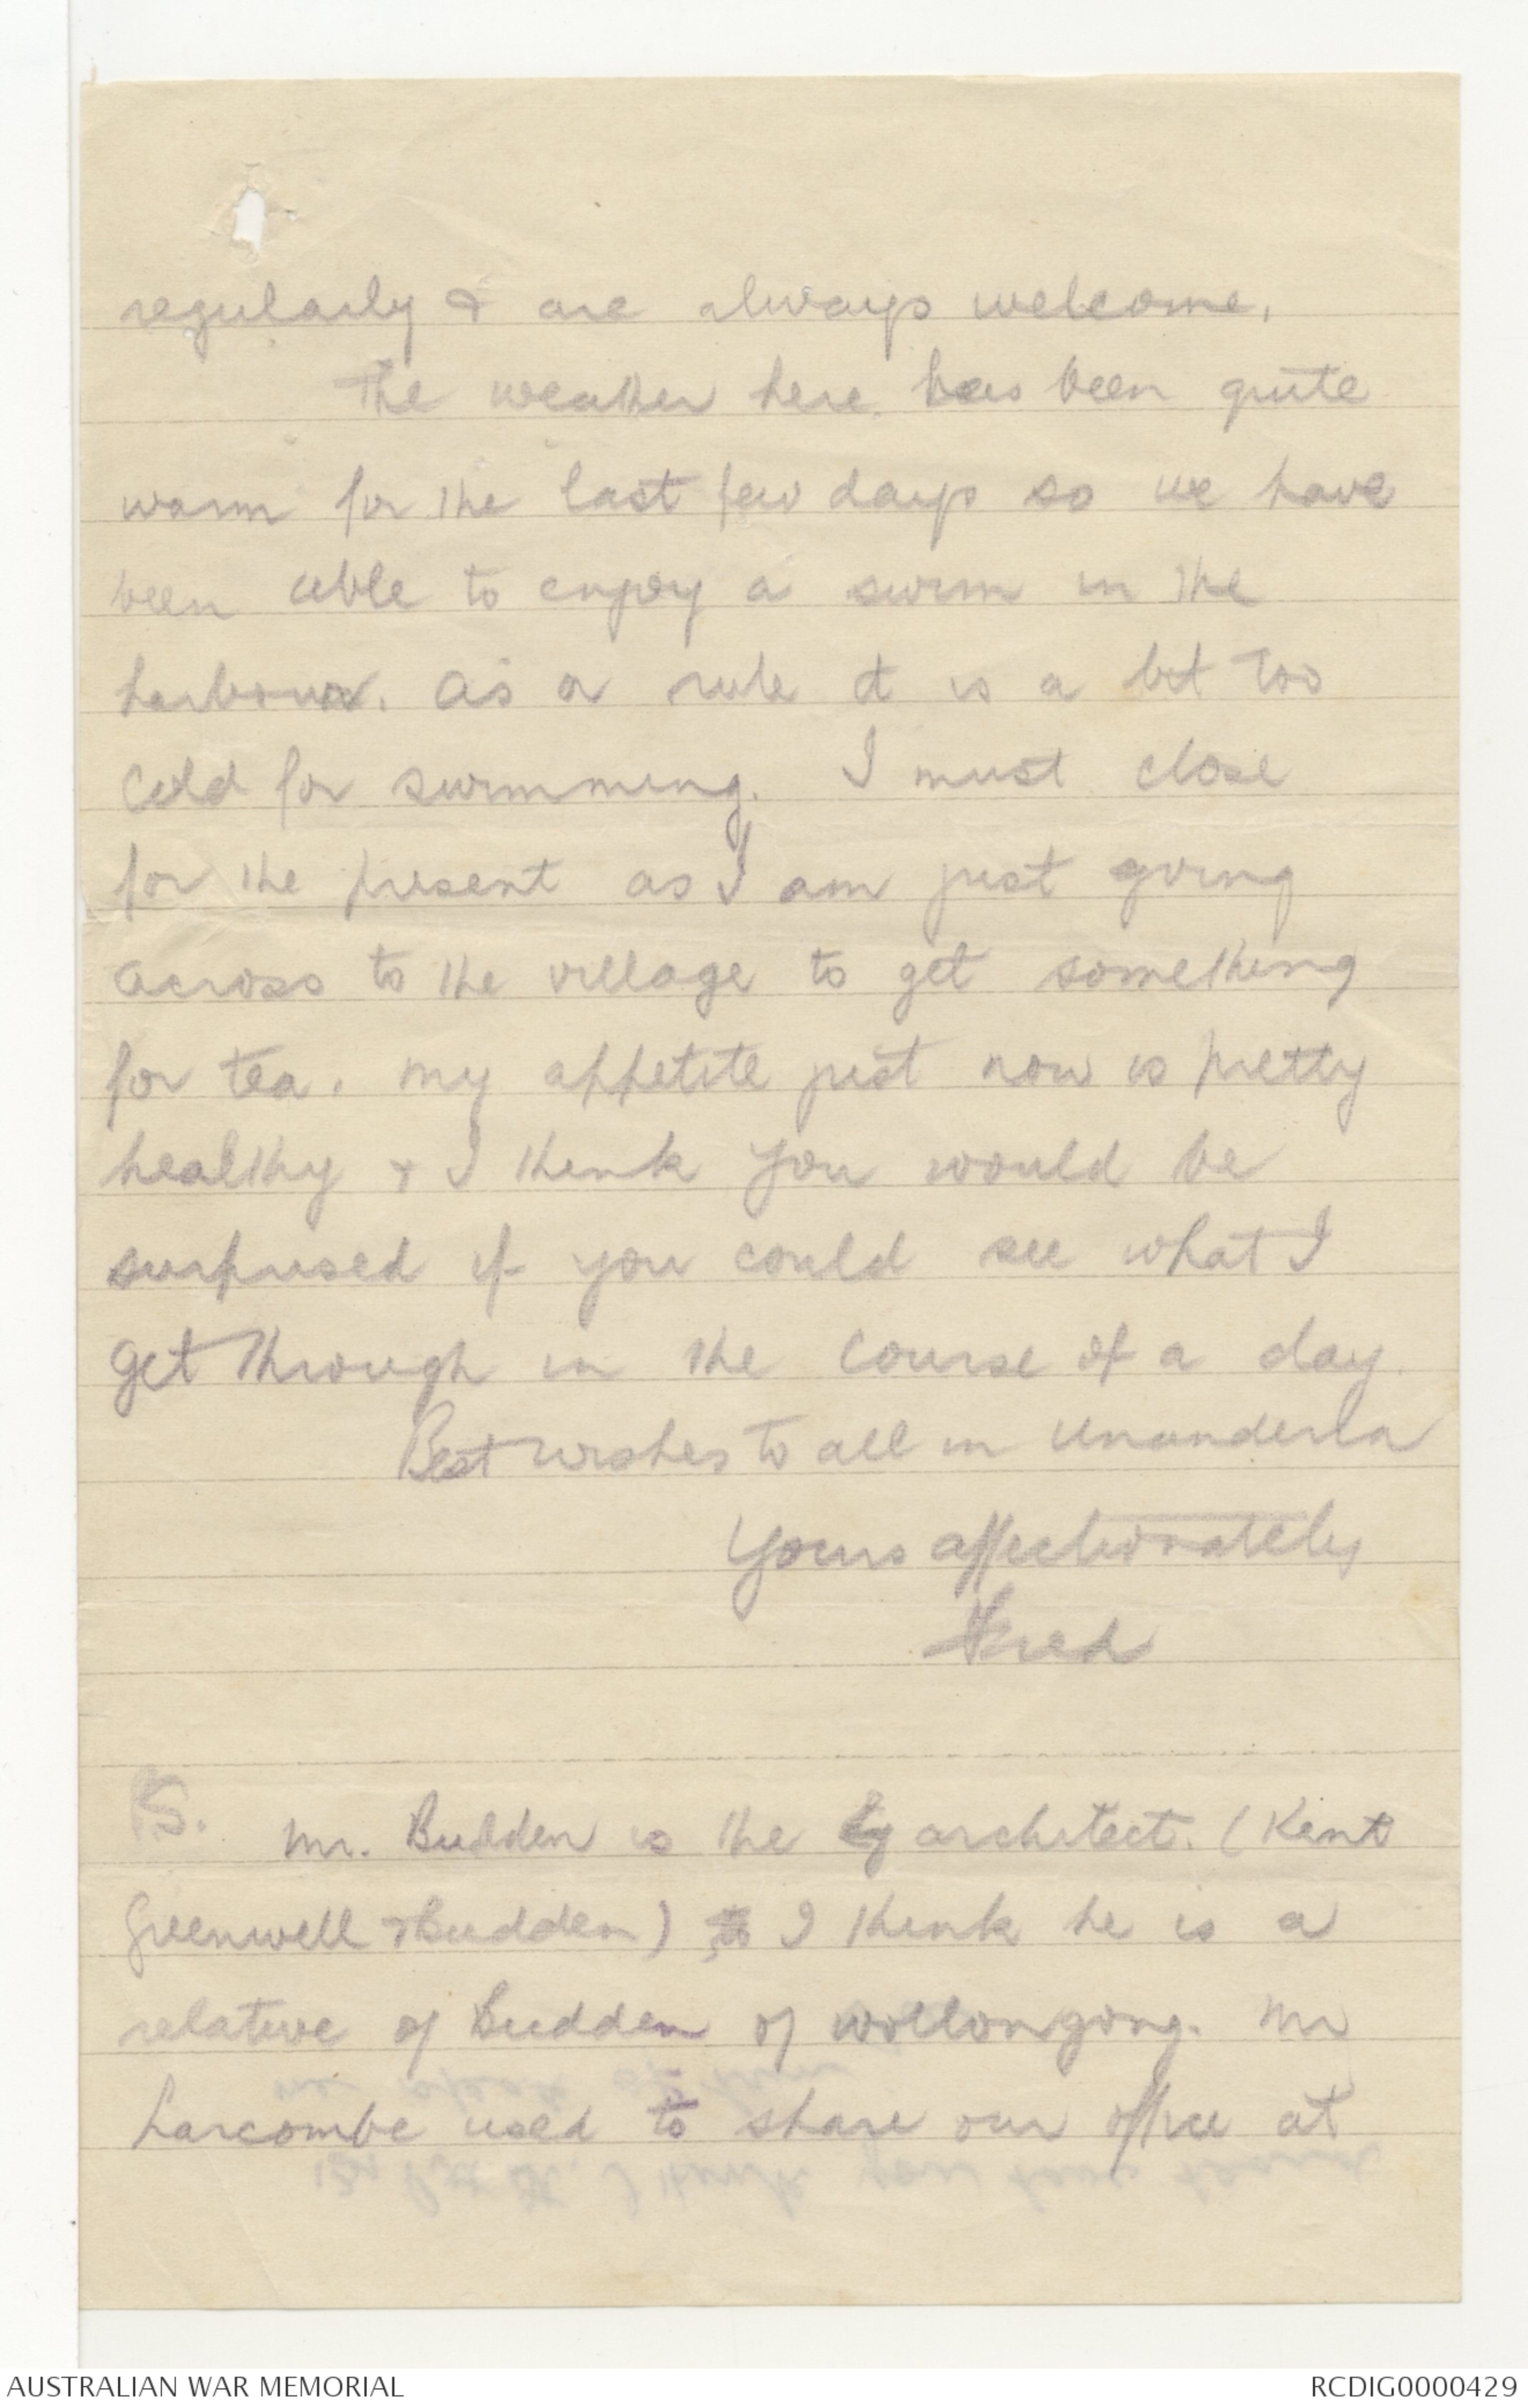 regularly & are always welcome.
The weather here has been quite
warm for the last few days so we have
been able to enjoy a swim in the
harbour. As a rule it is a bit too
cold for swimming. I must close
for the present as I am just going
across to the village to get something
for tea. My appetite just now is pretty
healthy & I think you would be
surprised if you could see what I
get through in the course of a day.
Best wishes to all in Unanderla
Yours affectionately
Fred
P.S. Mr. Budden is the architect. (Kent
Greenwell & Budden) I think he is a
relative of Budden of Wollongong. Mr
Larcombe used to share our office at
AUSTRALIAN WAR MEMORIAL
RCDIG0000429